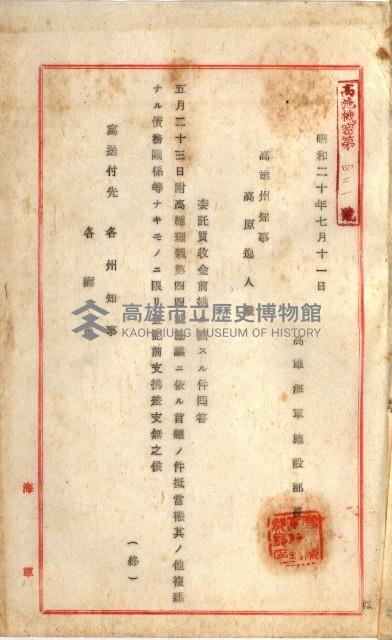 高施機密第四二一號
昭和二十年七月十一日
高雄海軍施設部長
高雄州知事
高原逸人殿
委託買收金前拂ニ關スル件回答
五月二十三日附高總理親第四四號協議ニ依ル首題ノ件抵當權其ノ他複雜
ナル債務關係等ナキモノニ限リ登記前支拂差支無之候
(終)
寫送付先 各州知事
各廳長
海軍
高雄市立歷史博物館
KAOHSIUNG MUSEUM OF HISTORY